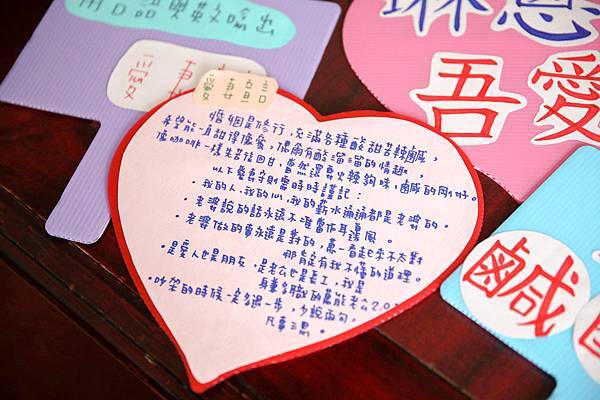 用
出
愛 妻
愛妻宣言
婚姻是修行，充滿各種酸甜苦辣鹹，
希望能一直甜得像蜜，偶爾有酸溜溜的情趣，
像咖啡一樣先苦後回甘，當然還要火辣夠味，鹹鹹的剛好。
以下愛妻守則要時時謹記：
・我的人，我的心，我的薪水通通都是老婆的。
・老婆說的話永遠不准當作耳邊風。
・老婆做的事永遠是對的，萬一看起來不太對
那肯定有我不懂的道理。
・是愛人也是朋友，是老公也是長工，我是
身兼多職的萬能老公2.0
・吵架的時候一定多退一步，少說兩句，
凡事三思。
琳恩
吾愛
鹹